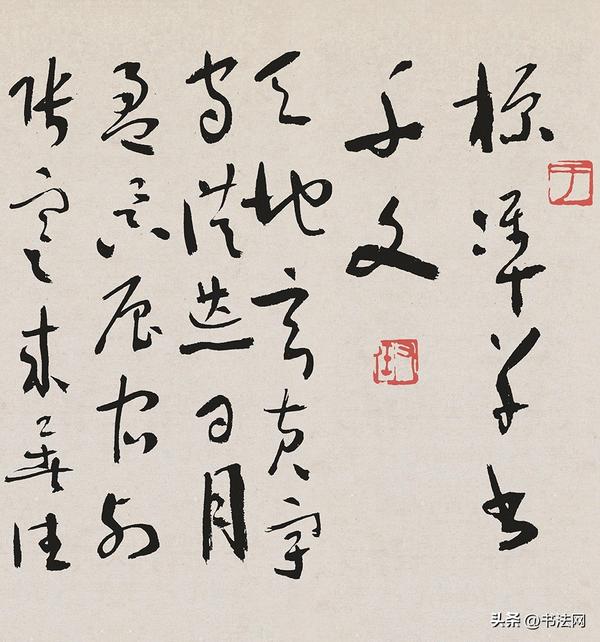 標準草書
于
千文
右任
天地玄黃宇
宙洪荒日月
盈昃辰宿列
張寒來暑往
头条 @书法网